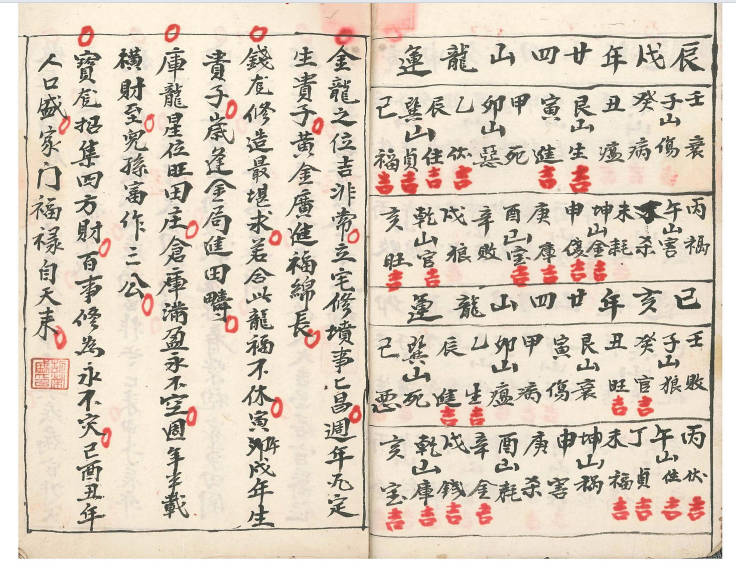 辰戌年廿四山龍運
壬衰
子山傷
癸病
丑瘟
艮山生吉
寅進吉
甲死
卯山惡
乙伏吉
辰住吉
巽山貞吉
巳福吉
丙禍
午山害
殺
未耗
坤山金吉
申吉
庚庫吉
酉山宝吉
辛敗
戌狼
乾山官吉
亥旺吉
巳亥年廿四山龍運
壬敗
子山狼
癸官吉
丑旺吉
艮山衰
寅傷
甲病
卯山瘟
乙生吉
辰進吉
巽山死
巳惡
丙伏吉
午山住吉
丁貞吉
未福吉
坤山禍
申害
庚杀
酉山耗
辛金吉
戌錢吉
乾山庫吉
亥宝吉
金龍之位吉非常立宅修墳事〻昌週年九定
生貴子黃金廣進福綿長
錢龙修造最堪求若合此龍福不休寅卯年戌年生
貴子歲逢金局進田疇
庫龍星位旺田庄倉庫滿盈永不空週年半載
橫財至兒孫富作三公
寶龙招集四方財百事修為永不灾巳酉丑年
人口盛家门福禄自天来